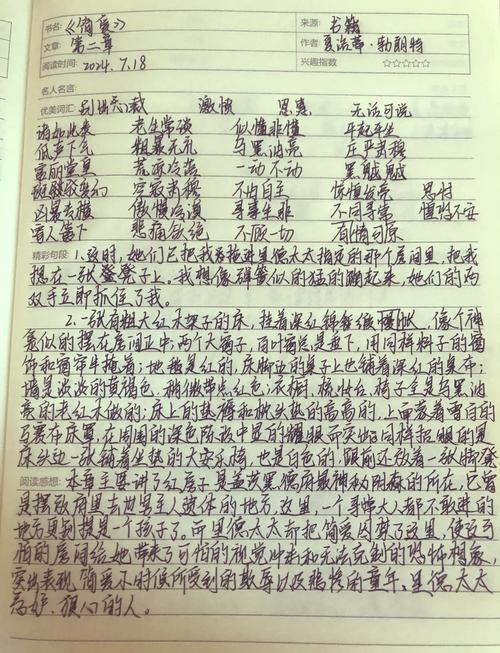 书名：《简爱》 来源：书籍
文章：第二章 作者：夏洛蒂·勃朗特
阅读时间：2024.7.18 兴趣指数 ☆☆☆☆☆
名人名言：
优美词汇：别出心裁 激愤 恩惠 无话可说
诸如此类 老生常谈 似懂非懂 平起平坐
低声下气 粗暴无礼 乌黑油亮 庄严肃穆
富丽堂皇 荒凉冷落 一动不动 黑魆魆
寂静肃穆 不由自主 惊惶 思忖
傲慢冷漠 寻事生非 不同寻常 惶恐不安
盲人 悲痛欲绝 不顾一切 有情可原
精彩句段：1.这时，她们已把我拖进里德太太指定的那个房间里，把我
摁在一张凳子上。我想像弹簧似的猛的蹦起来，她们的两
双手立即抓住了我。
2.一张有粗大红木架子的床，挂着深红锦缎帐，像个神
龛似的摆在房间正中；两个大窗子，百叶窗总是垂下，用同样料子的窗
饰和窗帘半掩着；地毯是红的，床脚边的桌子上也铺着深红的桌布；
墙是淡淡的黄褐色，稍微带点红色；衣橱、梳妆台、椅子全是乌黑油
亮的老红木做的；床上的垫褥和枕头垫的高高的，上面蒙着雪白的
马赛布床罩，在周围的深色陈设中显的耀眼而突出；同样招眼的是
床头边一张铺着坐垫的大安乐椅，也是白色的，跟前还放着一张脚凳
阅读感想：本章主要讲了红房子是盖茨黑德府最神秘阴森的所在，它曾
是摆放府里去世男主人遗体的地方，这里，一个寻常大人都不敢进的
地方更别提是一个孩子了。而里德太太却把简爱囚禁了这里，使这可
怕的房间给她带来了可怕的视觉冲击和无法克制的恐怖想象，
突出表现简爱小时候所受到的欺辱以及悲惨的童年。里德太太
狠心的人。